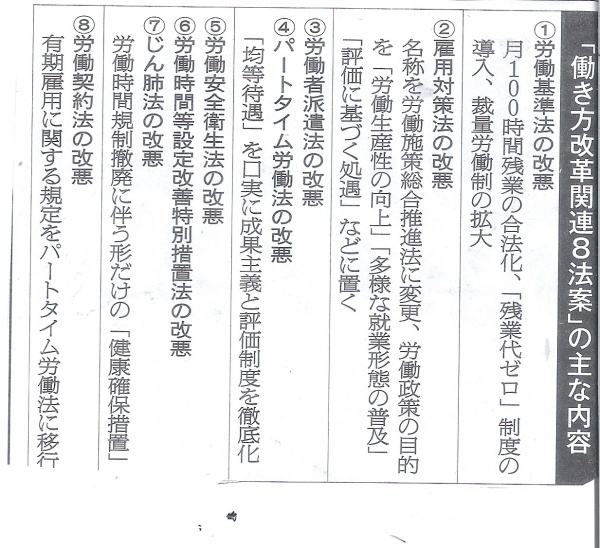 「働き方改革関連８法案」の主な内容
①労働基準法の改悪
月１００時間残業の合法化、「残業代ゼロ」制度の
導入、裁量労働制の拡大
②雇用対策法の改悪
名称を労働施策総合推進法に変更、労働政策の目的
を「労働生産性の向上」「多様な就業形態の普及」
「評価に基づく処遇」などに置く
③労働者派遣法の改悪
④パートタイム労働法の改悪
「均等待遇」を口実に成果主義と評価制度を徹底化
⑤労働安全衛生法の改悪
⑥労働時間等設定改善特別措置法の改悪
⑦じん肺法の改悪
労働時間規制撤廃に伴う形だけの「健康確保措置」
⑧労働契約法の改悪
有期雇用に関する規定をパートタイム労働法に移行